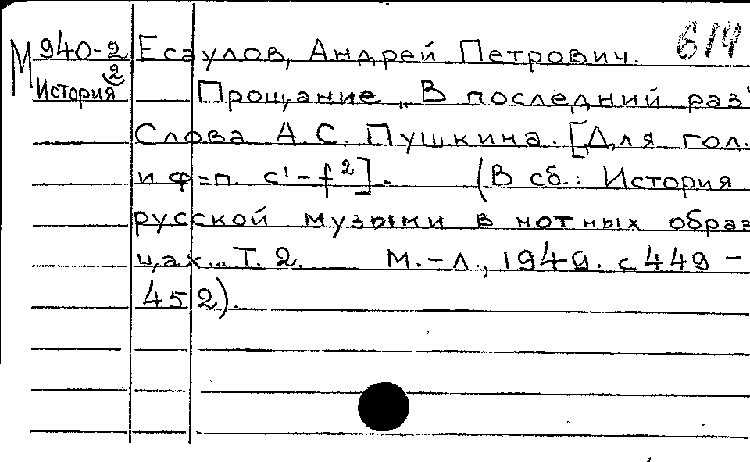 М 940-2 Есаулов, Андрей Петрович. 614
2
История Прощание „В последний раз"
Слова А.С. Пушкина. [Для гол.
и ф=п. c¹-f²]. (В сб.: История
русской музыки в нотных образ
цах... Т. 2. М.-Л., 1949. с 449-
452).